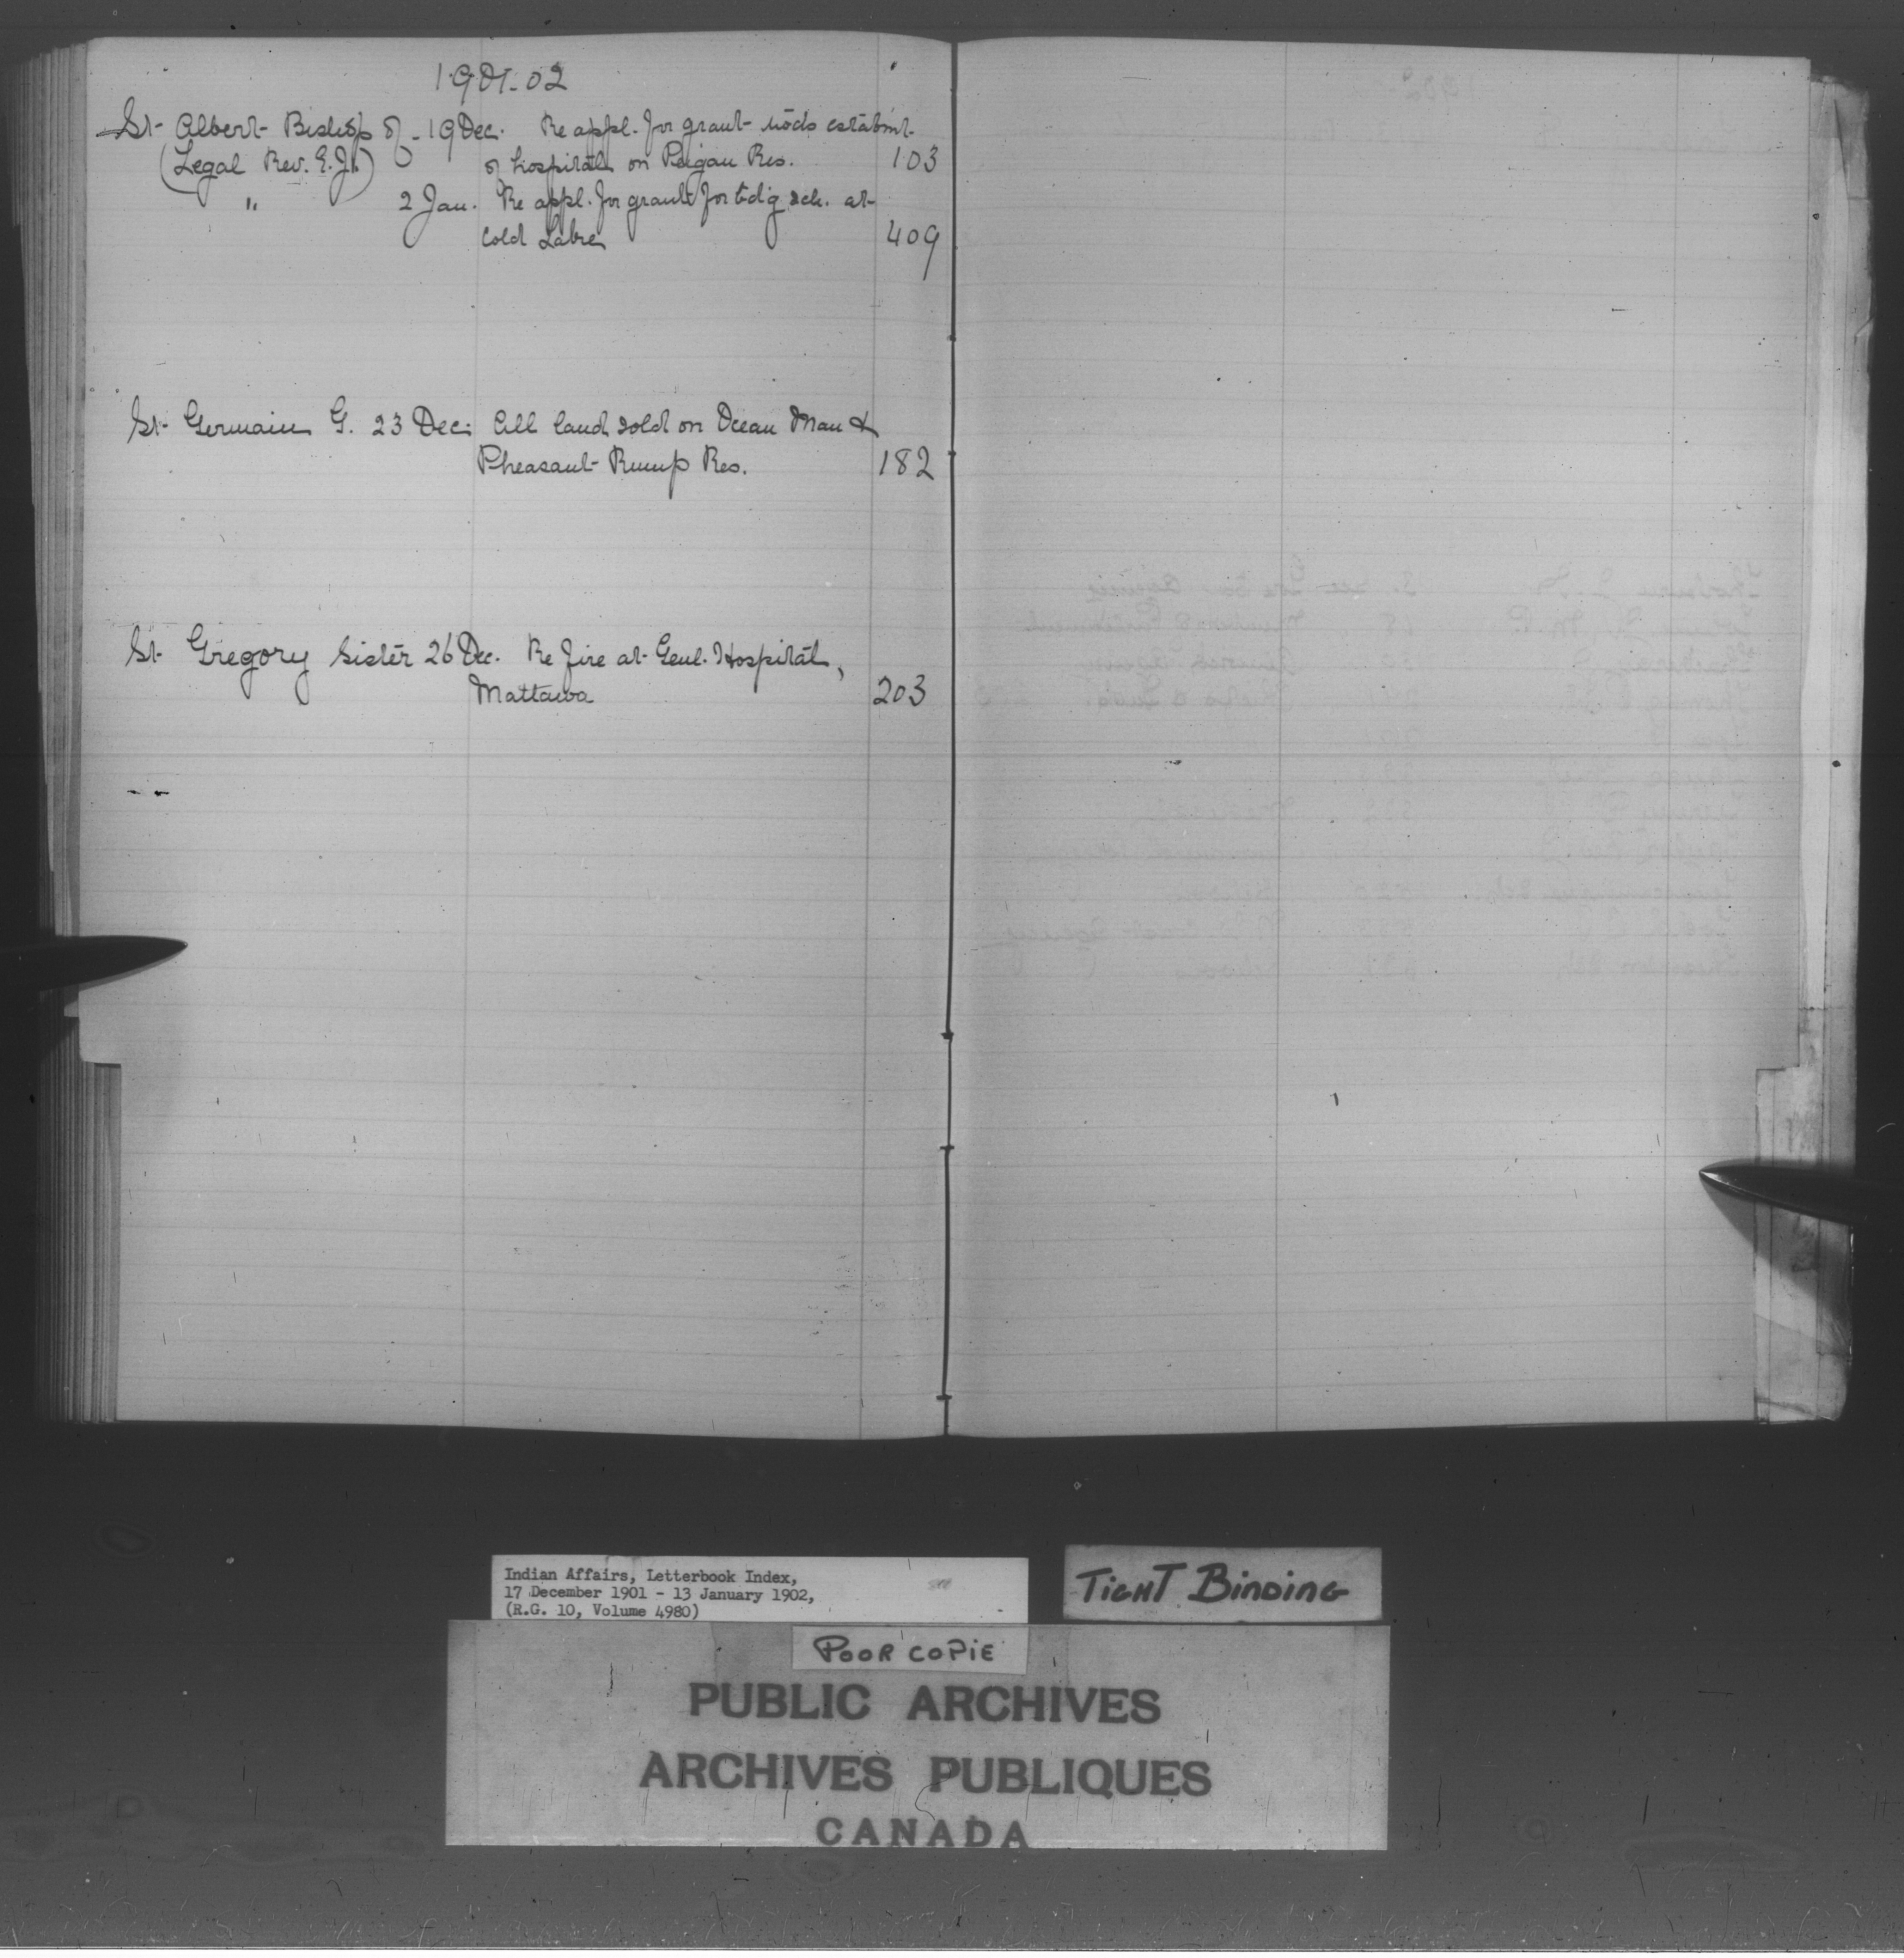 1901-02
St. Albert Bishop of - 19 Dec. Re appl. for grant tow'ds estabmt.
(Legal Rev. E.J.) of hospital on Peigan Res. 103
" 2 Jan. Re appl. for grant for bdg sch. at
Cold Lake 409
St. Germain G. 23 Dec. All land sold on Ocean Man &
Pheasant Rump Res. 182
St. Gregory Sister 26 Dec. Re fire at Genl. Hospital,
Mattawa 203
Indian Affairs, Letterbook Index,
17 December 1901 - 13 January 1902,
(R.G. 10, Volume 4980)
TIGHT BINDING
POOR COPIE
PUBLIC ARCHIVES
ARCHIVES PUBLIQUES
CANADA